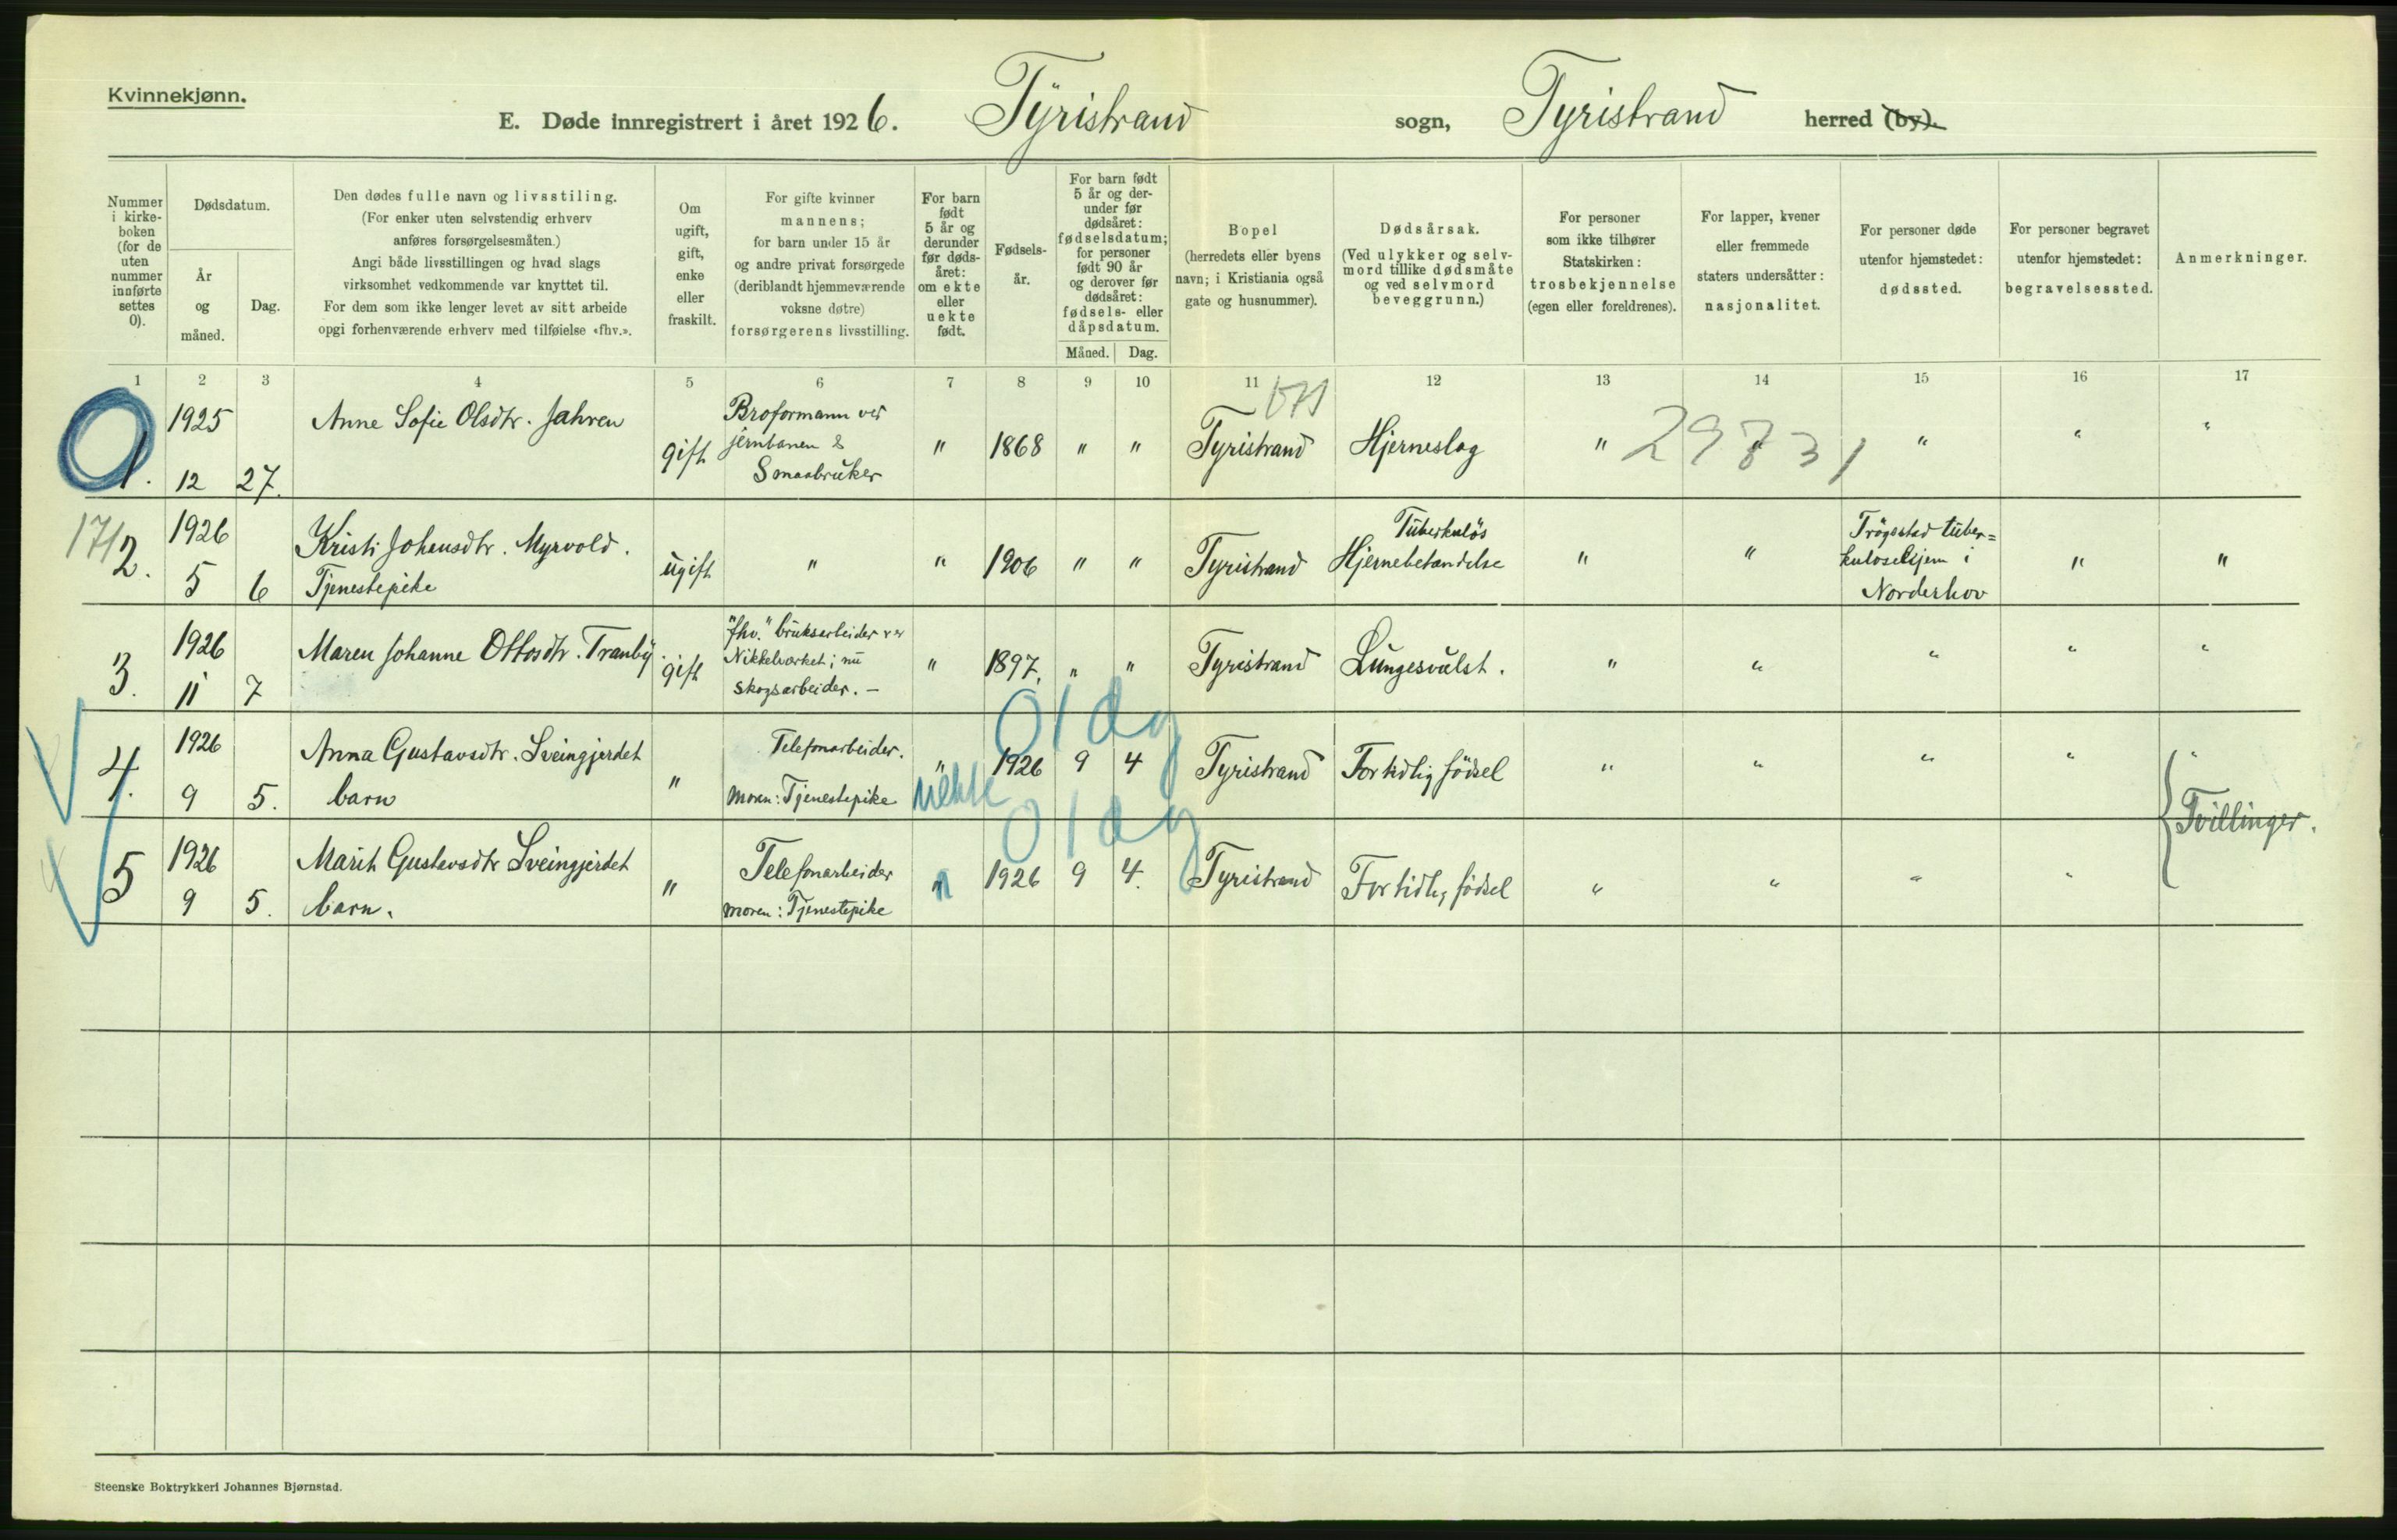 Kvinnekjønn.
E. Døde innregistrert i året 1926. Tyristrand sogn, Tyristrand herred (by).
Nummer
i kirke-
boken
(for de
uten
nummer
innførte
settes
0).
Dødsdatum.
År
og
måned.
Dag.
Den dødes fulle navn og livsstiling.
(For enker uten selvstendig erhverv
anføres forsørgelsesmåten.)
Angi både livsstillingen og hvad slags
virksomhet vedkommende var knyttet til.
For dem som ikke lenger levet av sitt arbeide
opgi forhenværende erhverv med tilføielse «fhv.».
Om
ugift,
gift,
enke
eller
fraskilt.
For gifte kvinner
mannens;
for barn under 15 år
og andre privat forsørgede
(deriblandt hjemmeværende
voksne døtre)
forsørgerens livsstilling.
For barn
født
5 år og
derunder
før døds-
året:
om ekte
eller
uekte
født.
Fødsels-
år.
For barn født
5 år og der-
under før
dødsåret:
fødselsdatum;
for personer
født 90 år
og derover før
dødsåret:
fødsels- eller
dåpsdatum.
Måned. Dag.
Bopel
(herredets eller byens
navn; i Kristiania også
gate og husnummer).
Dødsårsak.
(Ved ulykker og selv-
mord tillike dødsmåte
og ved selvmord
beveggrunn.)
For personer
som ikke tilhører
Statskirken:
trosbekjennelse
(egen eller foreldrenes).
For lapper, kvener
eller fremmede
staters undersåtter:
nasjonalitet.
For personer døde
utenfor hjemstedet:
dødssted.
For personer begravet
utenfor hjemstedet:
begravelsessted.
Anmerkninger.
1 2 3 4 5 6 7 8 9 10 11 12 13 14 15 16 17
0
1.
1925
12 27.
Anne Sofie Olsdtr. Jahren
gift
Broformann ved
jernbanen &
Smaabruker
" 1868 " " Tyristrand Hjerneslag " 29731 " " "
17/2.
1926
5 6
Kristi Johansdtr. Myrvold.
Tjenestepike
ugift " " 1906 " " Tyristrand
Tuberkuløs
Hjernebetændelse
" "
Trøgstad tuber=
kulosehjem i
Norderhov
" "
3.
1926
11 7
Maren Johanne Ottosdtr. Tranby.
gift
"fhv." bruksarbeider ved
Nikkelverket; nu
skogsarbeider. —
" 1897. " " Tyristrand Lungesvulst. " " " " "
0 1 dg
4.
1926
9 5.
Anna Gustavsdtr. Sveingjerdet
barn
"
Telefonarbeider.
Moren: Tjenestepike
" uekte
1926 9 4 Tyristrand For tidlig fødsel " " " " "
0 1 dg
Tvillinger.
5
1926
9 5.
Marit Gustavsdtr Sveingjerdet
barn.
"
Telefonarbeider
moren: Tjenestepike
" 1926 9 4. Tyristrand For tidlig fødsel " " " "
Steenske Boktrykkeri Johannes Bjørnstad.